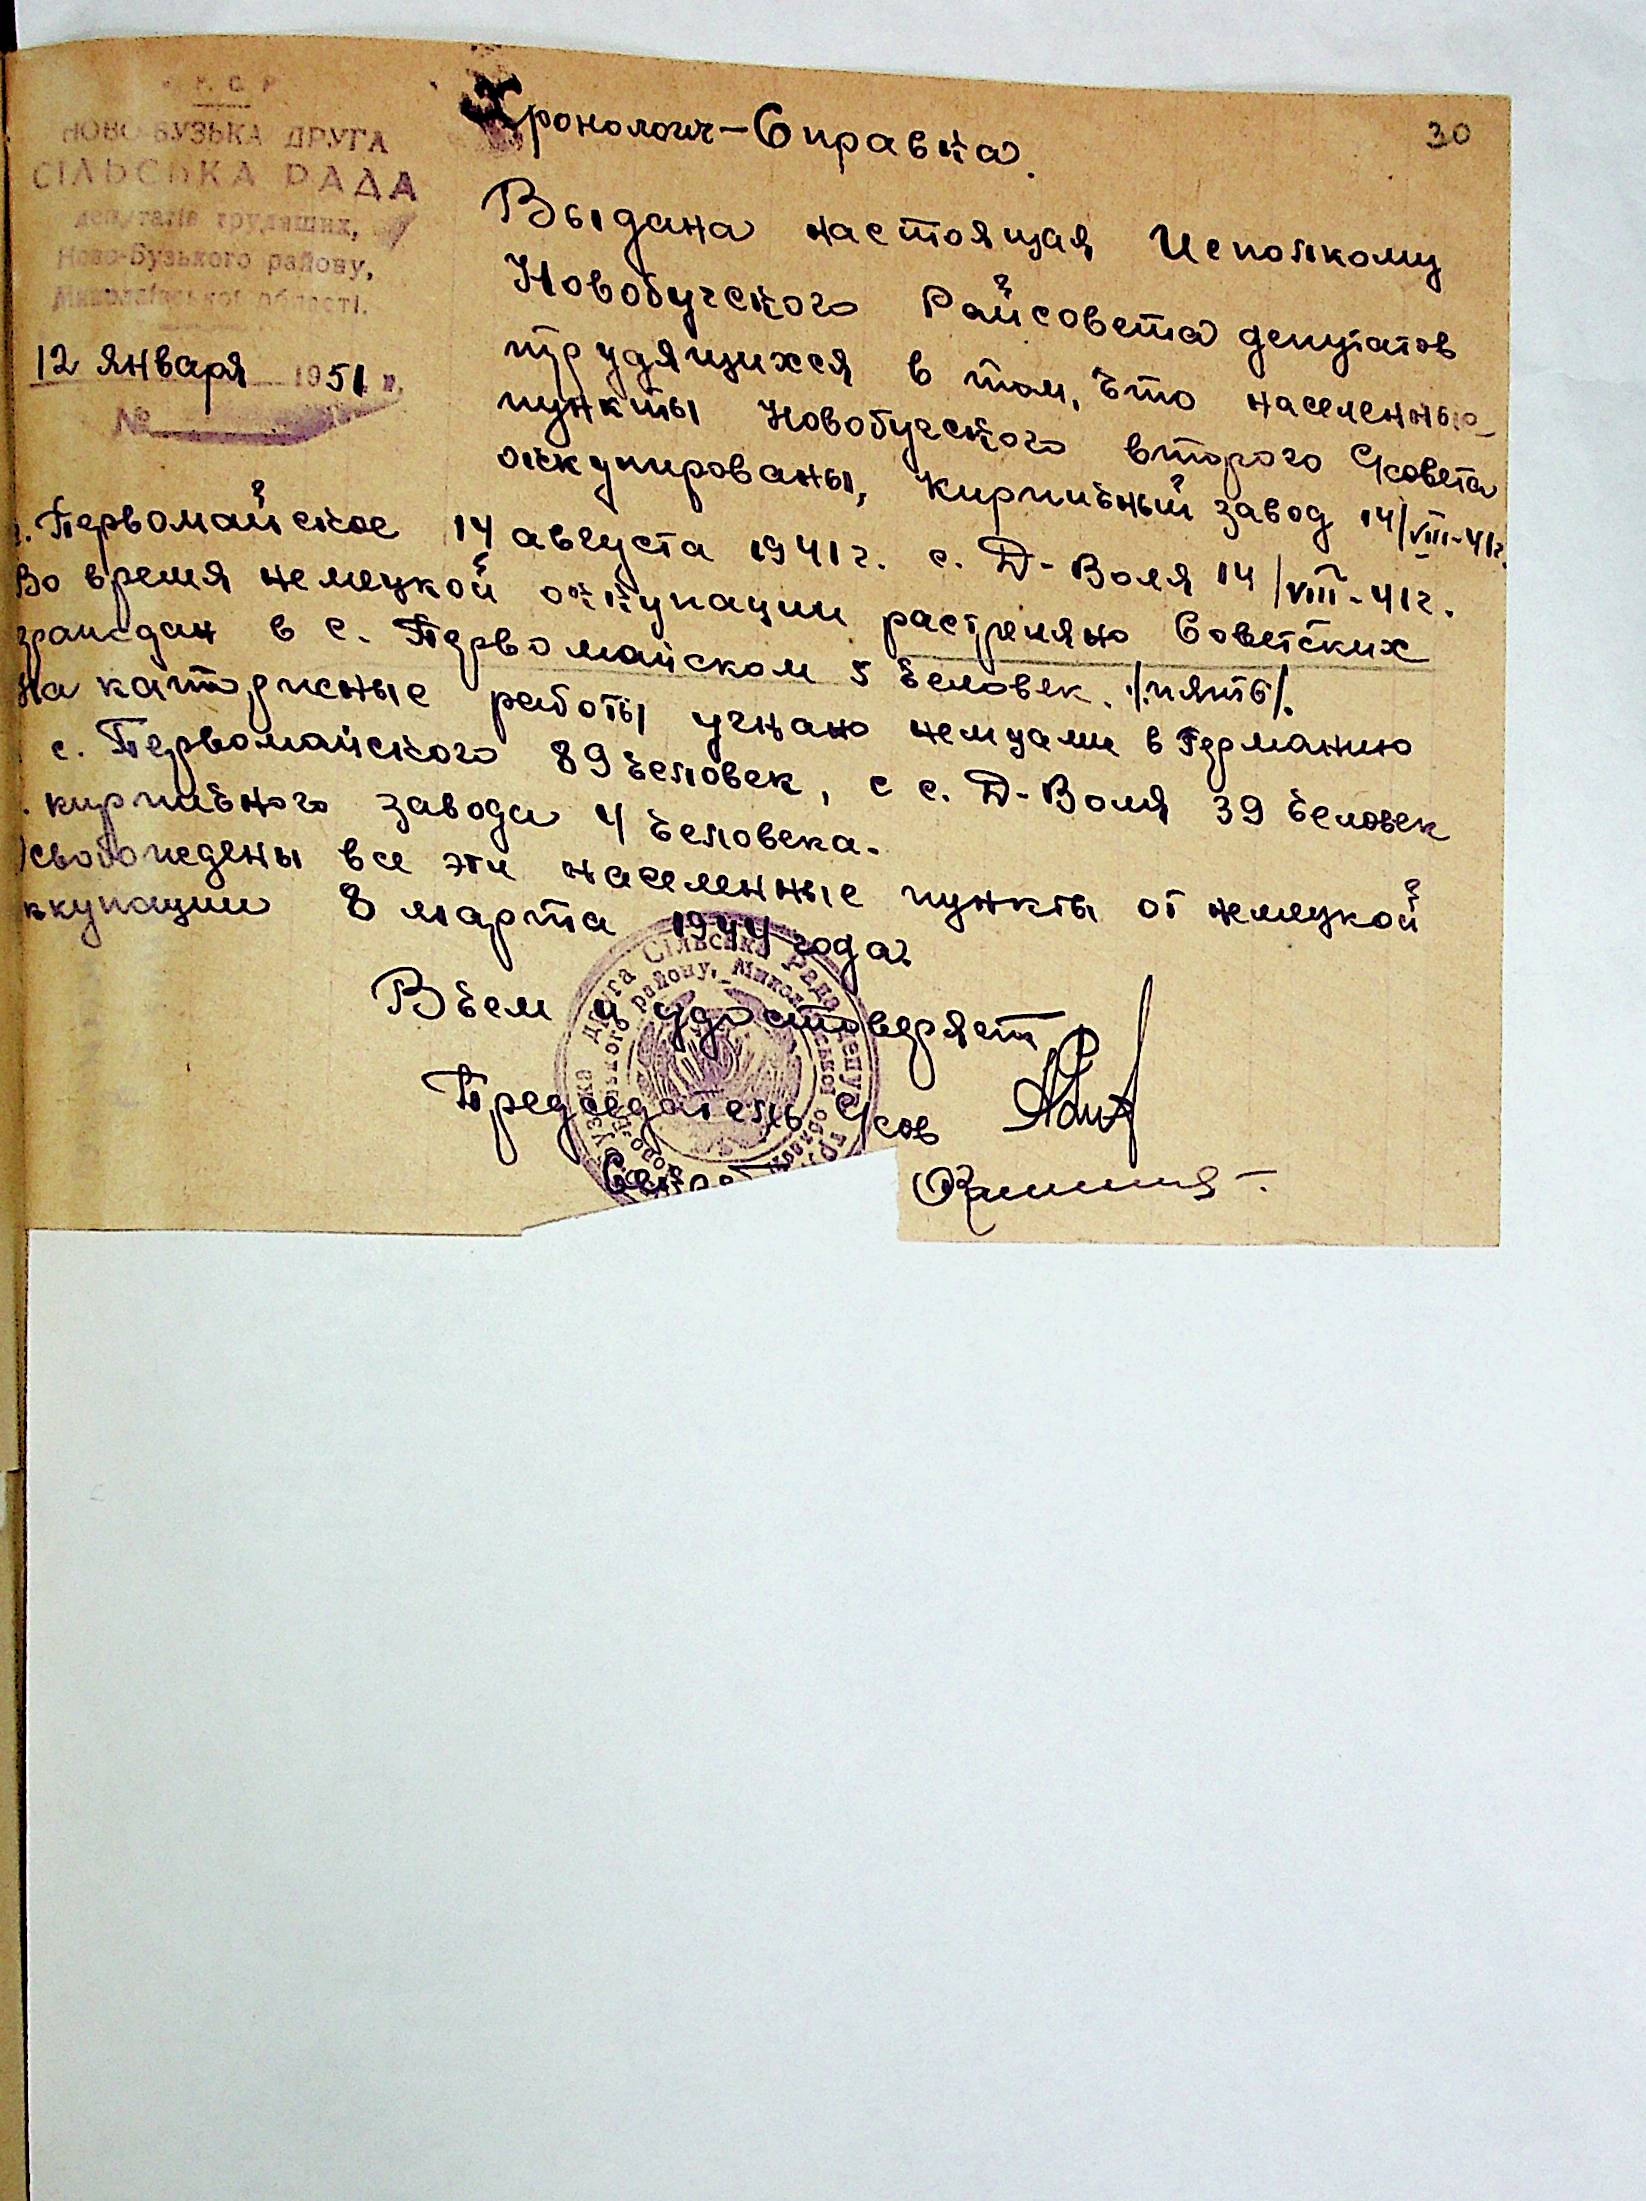 У. Р. С. Р.
НОВО-БУЗЬКА ДРУГА
СІЛЬСЬКА РАДА
депутатів трудящих,
Ново-Бузького району,
Миколаївської області.
12 января 1951 р.
№
30
Хронологич-Справка.
Выдана настоящая Исполкому
Новобугского Райсовета депутатов
трудящихся в том, что населенные
пункты Новобугского второго С/совета
оккупированы, Кирпичный завод 14/VIII-41г.
с. Первомайское 14 августа 1941г. с. Д-Воля 14/VIII-41г.
Во время немецкой оккупации растреляно Советских
граждан в с. Первомайском 5 человек. /пять/.
На каторжные работы угнано немцами в Германию
с. Первомайского 89 человек, с с. Д-Воля 39 человек
кирпичного завода 4 человека.
Освобождены все эти населенные пункты от немецкой
оккупации 8 марта 1944 года.
В чем и удостоверяет
Председатель С/сов
Секрет